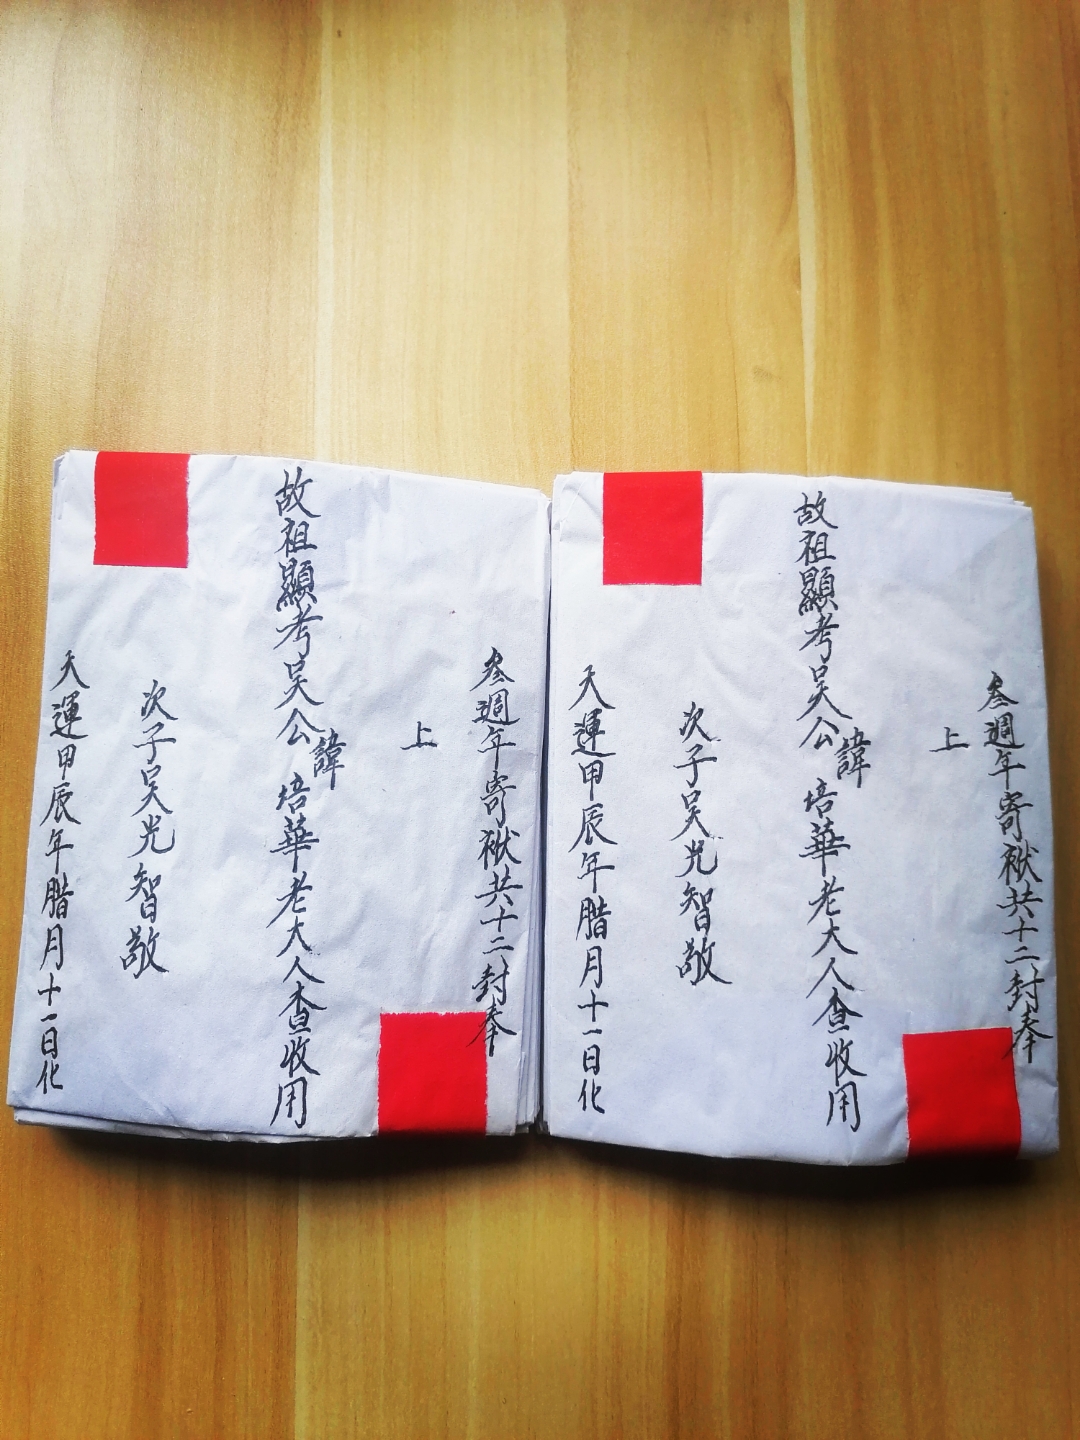 叁週年寄袱共十二封奉
上
故祖顯考吴公諱培華老大人查收用
次子吴光智敬
天運甲辰年腊月十一日化
叁週年寄袱共十二封奉
上
故祖顯考吴公諱培華老大人查收用
次子吴光智敬
天運甲辰年腊月十一日化